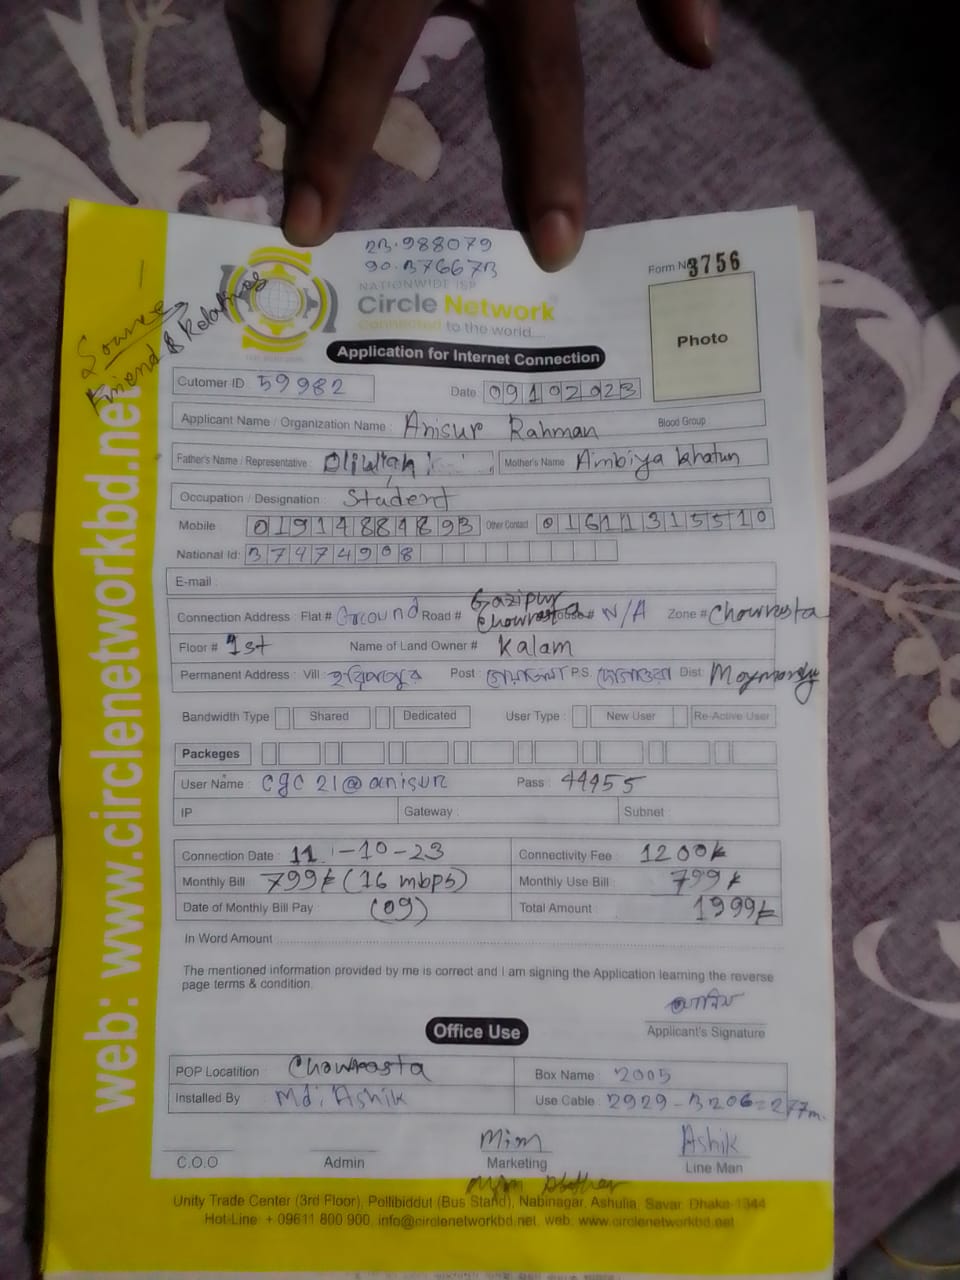 23.988079
90.376673
Form No 3756
NATIONWIDE ISP
Circle Network
Connected to the world...
Source
Friend & Relatives
Photo
Application for Internet Connection
Cutomer ID : 59982 Date : 09102023
Applicant Name / Organization Name : Anisur Rahman Blood Group
Father's Name / Representative : Mother's Name : Ambiya Khatun
Occupation / Designation : Student
Mobile : 01914884893 Other Contact : 01611315510
National Id: 37474908
E-mail :
Connection Address : Flat # Ground Road # Gazipur Chowrasta House# N/A Zone # Chowrasta
Floor # 1st Name of Land Owner # Kalam
Permanent Address : Vill : হরিপুর Post : P.S. Dist:
Bandwidth Type Shared Dedicated User Type : New User Re-Active User
Packeges
User Name : cgc21@anisur Pass : 44455
IP Gateway : Subnet :
Connection Date : 11-10-23 Connectivity Fee : 1200৳
Monthly Bill 799৳ (16 mbps) Monthly Use Bill : 799৳
Date of Monthly Bill Pay : (09) Total Amount : 1999৳
In Word Amount
The mentioned information provided by me is correct and I am signing the Application learning the reverse
page terms & condition.
Applicant's Signature
Office Use
POP Locatition : Chowrasta Box Name : 2005
Installed By Md. Ashik Use Cable : 2929 - 3206 = 277m.
Mim Ashik
C.O.O Admin Marketing Line Man
Unity Trade Center (3rd Floor), Pollibiddut (Bus Stand), Nabinagar, Ashulia, Savar, Dhaka-1344
Hot-Line: + 09611 800 900, info@circlenetworkbd.net, web: www.circlenetworkbd.net
web: www.circlenetworkbd.net